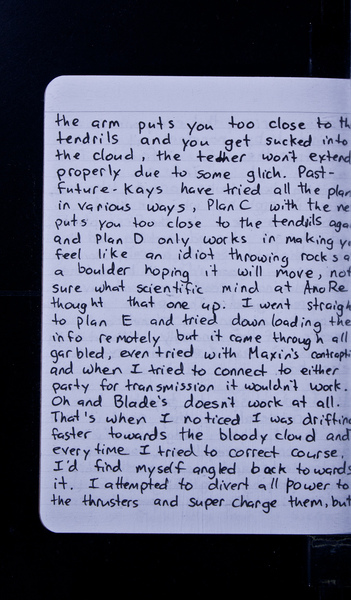 the arm puts you too close to th
tendrils and you get sucked into
the cloud, the tether won't extend
properly due to some glich. Past-
future-Kays have tried all the plan
in various ways, Plan C with the ne
puts you too close to the tendils aga
and Plan D only works in making yo
feel like an idiot throwing rocks a
a boulder hoping it will move, not
sure what scientific mind at AnoRe
thought that one up. I went straigh
to plan E and tried downloading the
info remotely but it came through all
garbled, even tried with Maxin's contrapti
and when I tried to connect to either
party for transmission it wouldn't work.
Oh and Blade's doesn't work at all.
That's when I noticed I was drifting
faster towards the bloody cloud and
every time I tried to correct course,
I'd find myself angled back towards
it. I attempted to divert all power to
the thrusters and super charge them, but